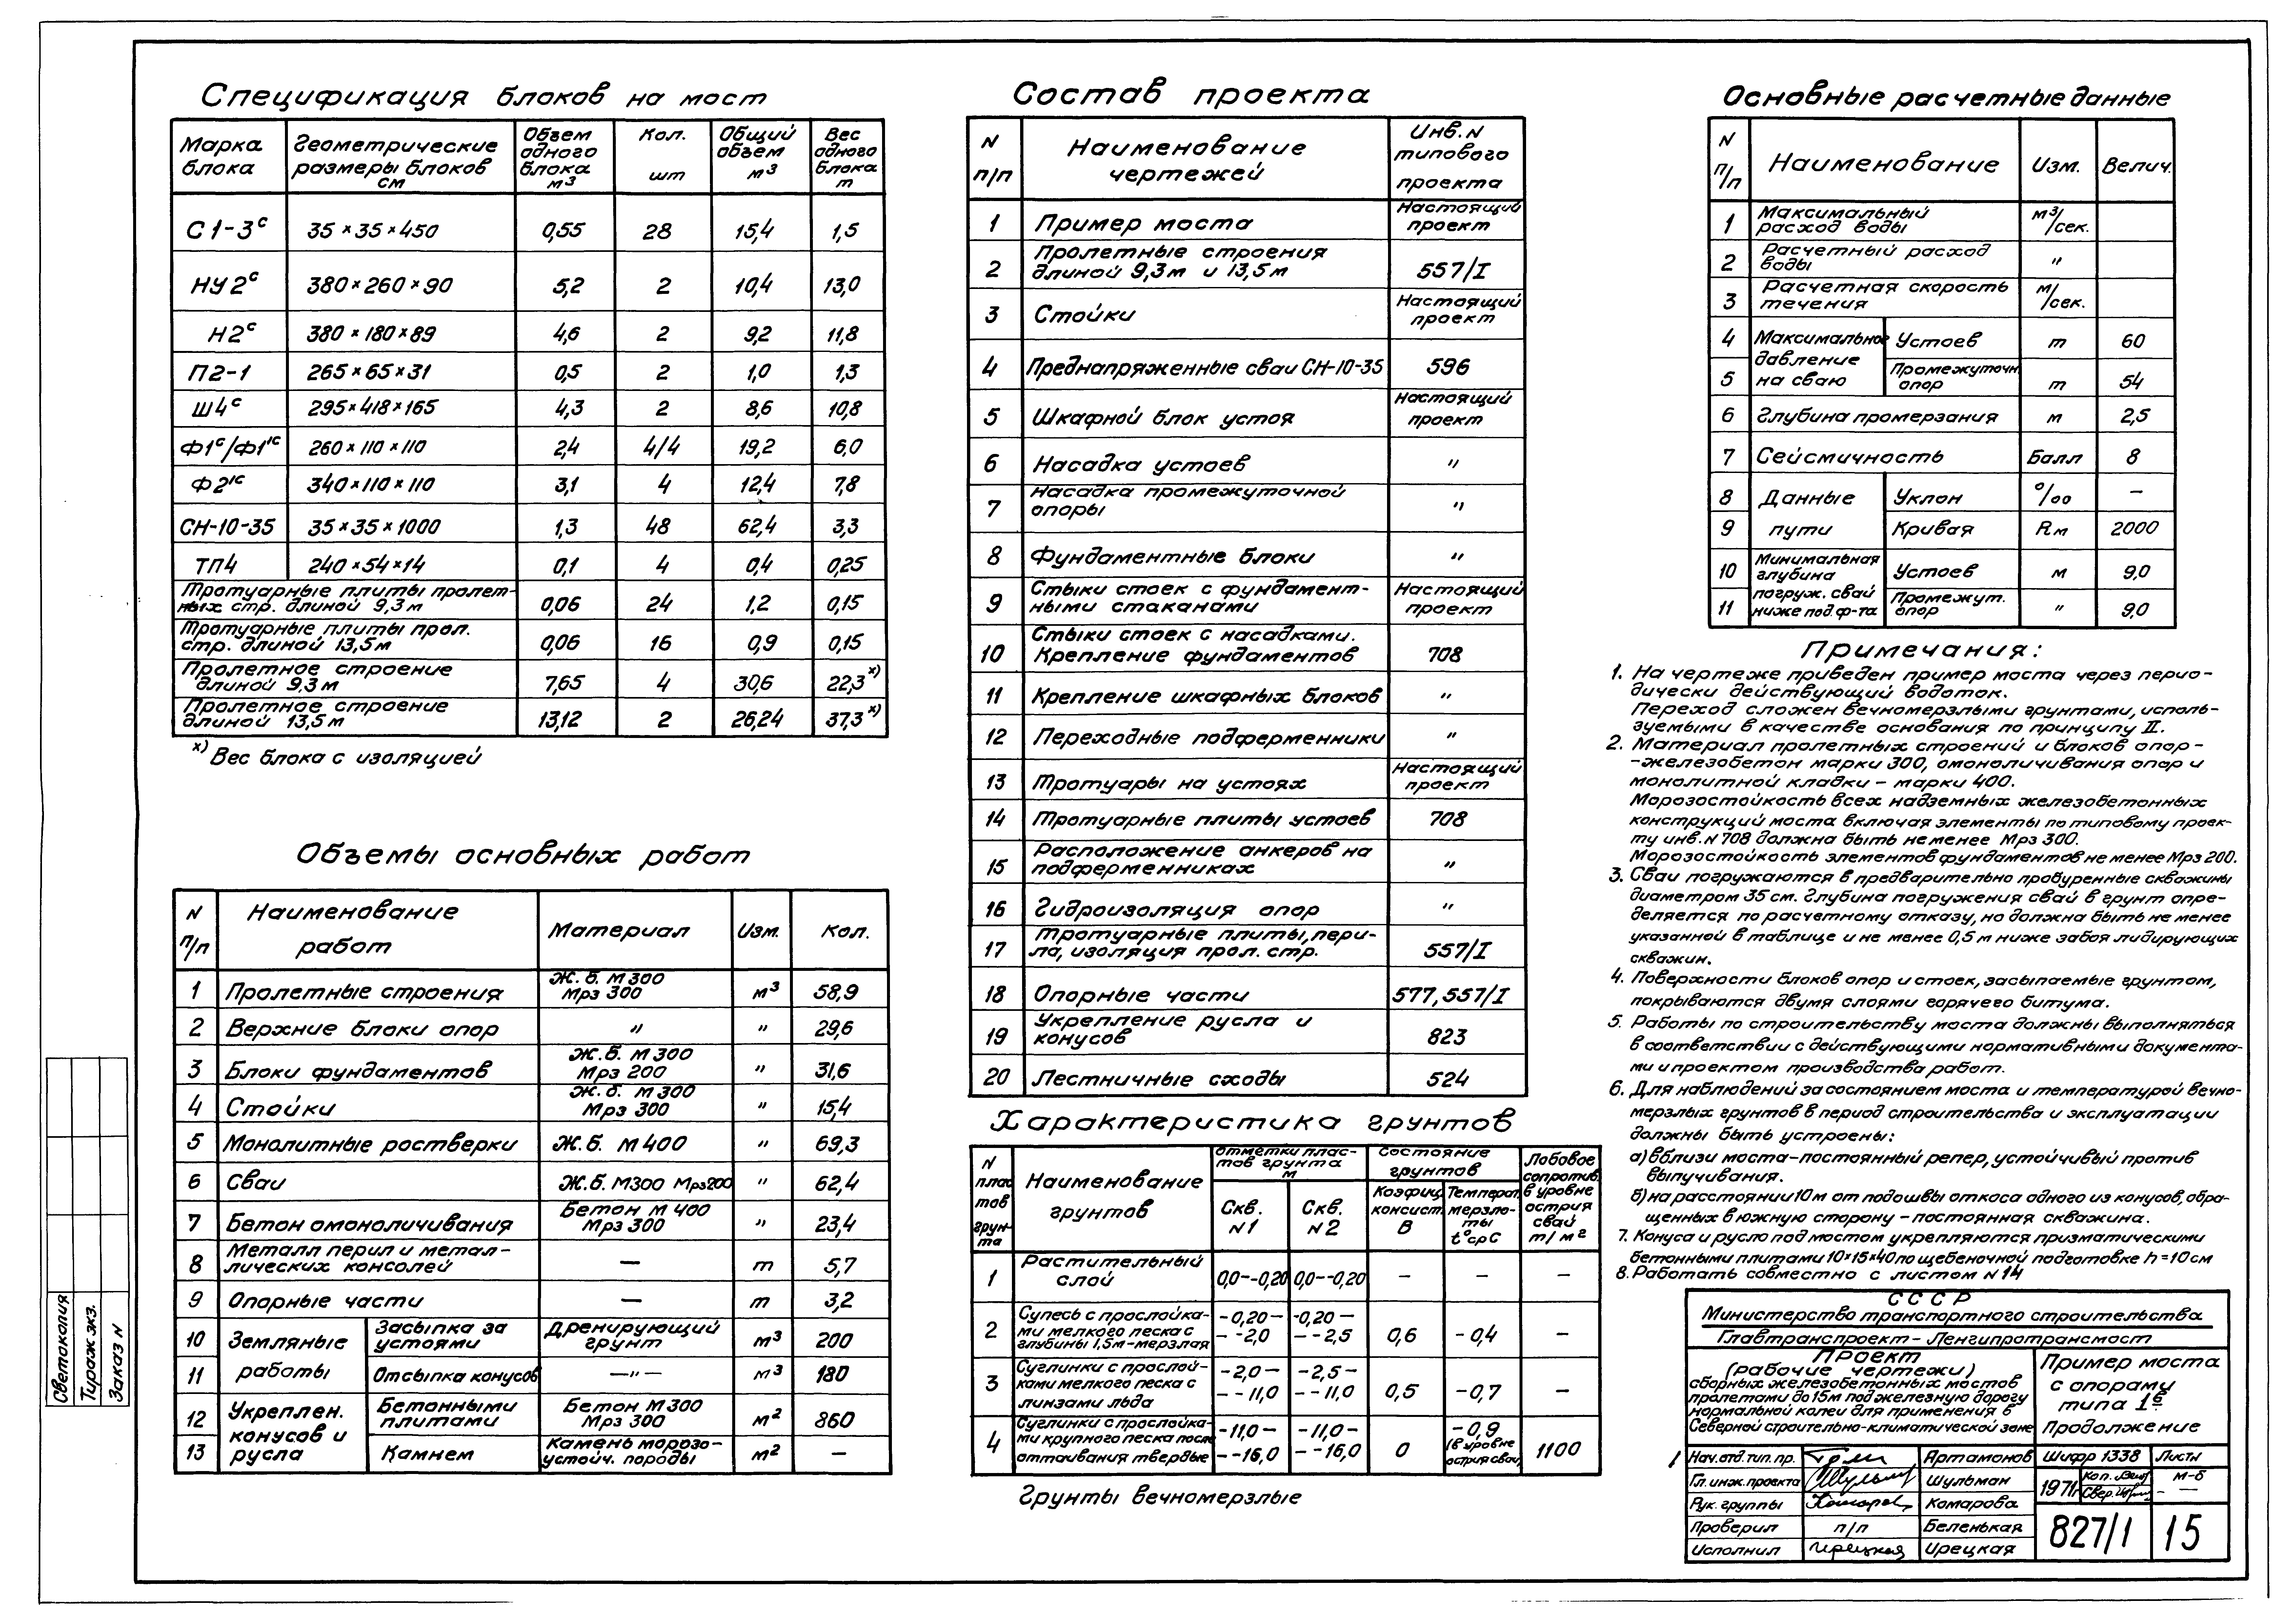 Спецификация блоков на мост
Марка блока | Геометрические размеры блоков см | Объем одного блока м3 | Кол. шт | Общий объем м3 | Вес одного блока т
С1-3с | 35×35×450 | 0,55 | 28 | 15,4 | 1,5
НУ2с | 380×260×90 | 5,2 | 2 | 10,4 | 13,0
Н2с | 380×180×89 | 4,6 | 2 | 9,2 | 11,8
П2-1 | 265×65×31 | 0,5 | 2 | 1,0 | 1,3
Ш4с | 295×418×165 | 4,3 | 2 | 8,6 | 10,8
Ф1с/Ф1'с | 260×110×110 | 2,4 | 4/4 | 19,2 | 6,0
Ф2'с | 340×110×110 | 3,1 | 4 | 12,4 | 7,8
СН-10-35 | 35×35×1000 | 1,3 | 48 | 62,4 | 3,3
ТП4 | 240×54×14 | 0,1 | 4 | 0,4 | 0,25
Тротуарные плиты пролет-
ных стр. длиной 9,3м | 0,06 | 24 | 1,2 | 0,15
Тротуарные плиты прол.
стр. длиной 13,5м | 0,06 | 16 | 0,9 | 0,15
Пролетное строение
длиной 9,3м | 7,65 | 4 | 30,6 | 22,3х)
Пролетное строение
длиной 13,5м | 13,12 | 2 | 26,24 | 37,3х)
х) Вес блока с изоляцией
Объемы основных работ
N п/п | Наименование работ | Материал | Изм. | Кол.
1 | Пролетные строения | Ж.б. М300 Мрз 300 | м3 | 58,9
2 | Верхние блоки опор | " | " | 29,6
3 | Блоки фундаментов | Ж.б. М300 Мрз 200 | " | 31,6
4 | Стойки | Ж.б. М300 Мрз 300 | " | 15,4
5 | Монолитные ростверки | Ж.б. М400 | " | 69,3
6 | Сваи | Ж.б. М300 Мрз200 | " | 62,4
7 | Бетон омоноличивания | Бетон М400 Мрз 300 | " | 23,4
8 | Металл перил и метал-
лических консолей | — | т | 5,7
9 | Опорные части | — | т | 3,2
10 | Земляные работы | Засыпка за устоями | Дренирующий грунт | м3 | 200
11 | Отсыпка конусов | —"— | м3 | 180
12 | Укреплен. конусов и русла | Бетонными плитами | Бетон М300 Мрз 300 | м2 | 860
13 | Камнем | Камень морозо-
устойч. породы | м2 | —
Состав проекта
N п/п | Наименование чертежей | Инв. N типового проекта
1 | Пример моста | Настоящий проект
2 | Пролетные строения
длиной 9,3м и 13,5м | 557/I
3 | Стойки | Настоящий проект
4 | Преднапряженные сваи СН-10-35 | 596
5 | Шкафной блок устоя | Настоящий проект
6 | Насадка устоев | "
7 | Насадка промежуточной
опоры | "
8 | Фундаментные блоки | "
9 | Стыки стоек с фундамент-
ными стаканами | Настоящий проект
10 | Стыки стоек с насадками.
Крепление фундаментов | 708
11 | Крепление шкафных блоков | "
12 | Переходные подферменники | "
13 | Тротуары на устоях | Настоящий проект
14 | Тротуарные плиты устоев | 708
15 | Расположение анкеров на
подферменниках | "
16 | Гидроизоляция опор | "
17 | Тротуарные плиты, пери-
ла, изоляция прол. стр. | 557/I
18 | Опорные части | 577, 557/I
19 | Укрепление русла и
конусов | 823
20 | Лестничные сходы | 524
Характеристика грунтов
N плас тов грун- та | Наименование грунтов | Отметки плас-
тов грунта м | Состояние грунтов | Лобовое сопротив. в уровне острия сваи т/м2
Скв. N1 | Скв. N2 | Коэфиц. консист. В | Температ. мерзло-
ты t°ср С
1 | Растительный слой | 0,0--0,20 | 0,0--0,20 | — | — | —
2 | Супесь с прослойка-
ми мелкого песка с
глубины 1,5м-мерзлая | -0,20— --2,0 | -0,20— --2,5 | 0,6 | -0,4 | —
3 | Суглинки с прослой-
ками мелкого песка с
линзами льда | -2,0— --11,0 | -2,5— --11,0 | 0,5 | -0,7 | —
4 | Суглинки с прослойка-
ми крупного песка после
оттаивания твердые | -11,0— --16,0 | -11,0— --16,0 | 0 | -0,9 (в уровне острия сваи) | 1100
Грунты вечномерзлые
Основные расчетные данные
N п/п | Наименование | Изм. | Велич.
1 | Максимальный
расход воды | м3/сек.
2 | Расчетный расход
воды | "
3 | Расчетная скорость
течения | м/сек.
4 | Максимальное давление на сваю | Устоев | т | 60
5 | Промежуточн. опор | т | 54
6 | Глубина промерзания | м | 2,5
7 | Сейсмичность | Балл | 8
8 | Данные пути | Уклон | °/оо | —
9 | Кривая | Rм | 2000
10 | Минимальная глубина погруж. свай ниже под.ф-та | Устоев | м | 9,0
11 | Промежут. опор | " | 9,0
Примечания:
1. На чертеже приведен пример моста через перио-
дически действующий водоток.
Переход сложен вечномерзлыми грунтами, исполь-
зуемыми в качестве основания по принципу II.
2. Материал пролетных строений и блоков опор-
-железобетон марки 300, омоноличивания опор и
монолитной кладки – марки 400.
Морозостойкость всех надземных железобетонных
конструкций моста включая элементы по типовому проек-
ту инв. N 708 должна быть не менее Мрз 300.
Морозостойкость элементов фундаментов не менее Мрз 200.
3. Сваи погружаются в предварительно пробуренные скважины
диаметром 35 см. Глубина погружения свай в грунт опре-
деляется по расчетному отказу, но должна быть не менее
указанной в таблице и не менее 0,5 м ниже забоя лидирующих
скважин.
4. Поверхности блоков опор и стоек, засыпаемые грунтом,
покрываются двумя слоями горячего битума.
5. Работы по строительству моста должны выполняться
в соответствии с действующими нормативными документа-
ми и проектом производства работ.
6. Для наблюдений за состоянием моста и температурой вечно-
мерзлых грунтов в период строительства и эксплуатации
должны быть устроены:
а) вблизи моста-постоянный репер, устойчивый против
выпучивания.
б) на расстоянии 10м от подошвы откоса одного из конусов, обра-
щенных в южную сторону – постоянная скважина.
7. Конуса и русло под мостом укрепляются призматическими
бетонными плитами 10×15×40 по щебеночной подготовке h=10см
8. Работать совместно с листом N14
СССР
Министерство транспортного строительства
Главтранспроект – Ленгипротрансмост
Проект
(рабочие чертежи)
сборных железобетонных мостов
пролетами до 15м под железную дорогу
нормальной колеи для применения в
Северной строительно-климатической зоне
Пример моста
с опорами
типа 1с
Продолжение
1 Нач. отд. тип. пр. | Артамонов | Шифр 1338 | Листы
Гл. инж. проекта | Шульман | 1971г | Коп. | м-б
Рук. группы | Комарова | Свер. | – —
Проверил | п/п | Беленькая | 827/1 | 15
Исполнил | Ирецкая | Ирецкая
Светокопия
Тираж экз.
Заказ N